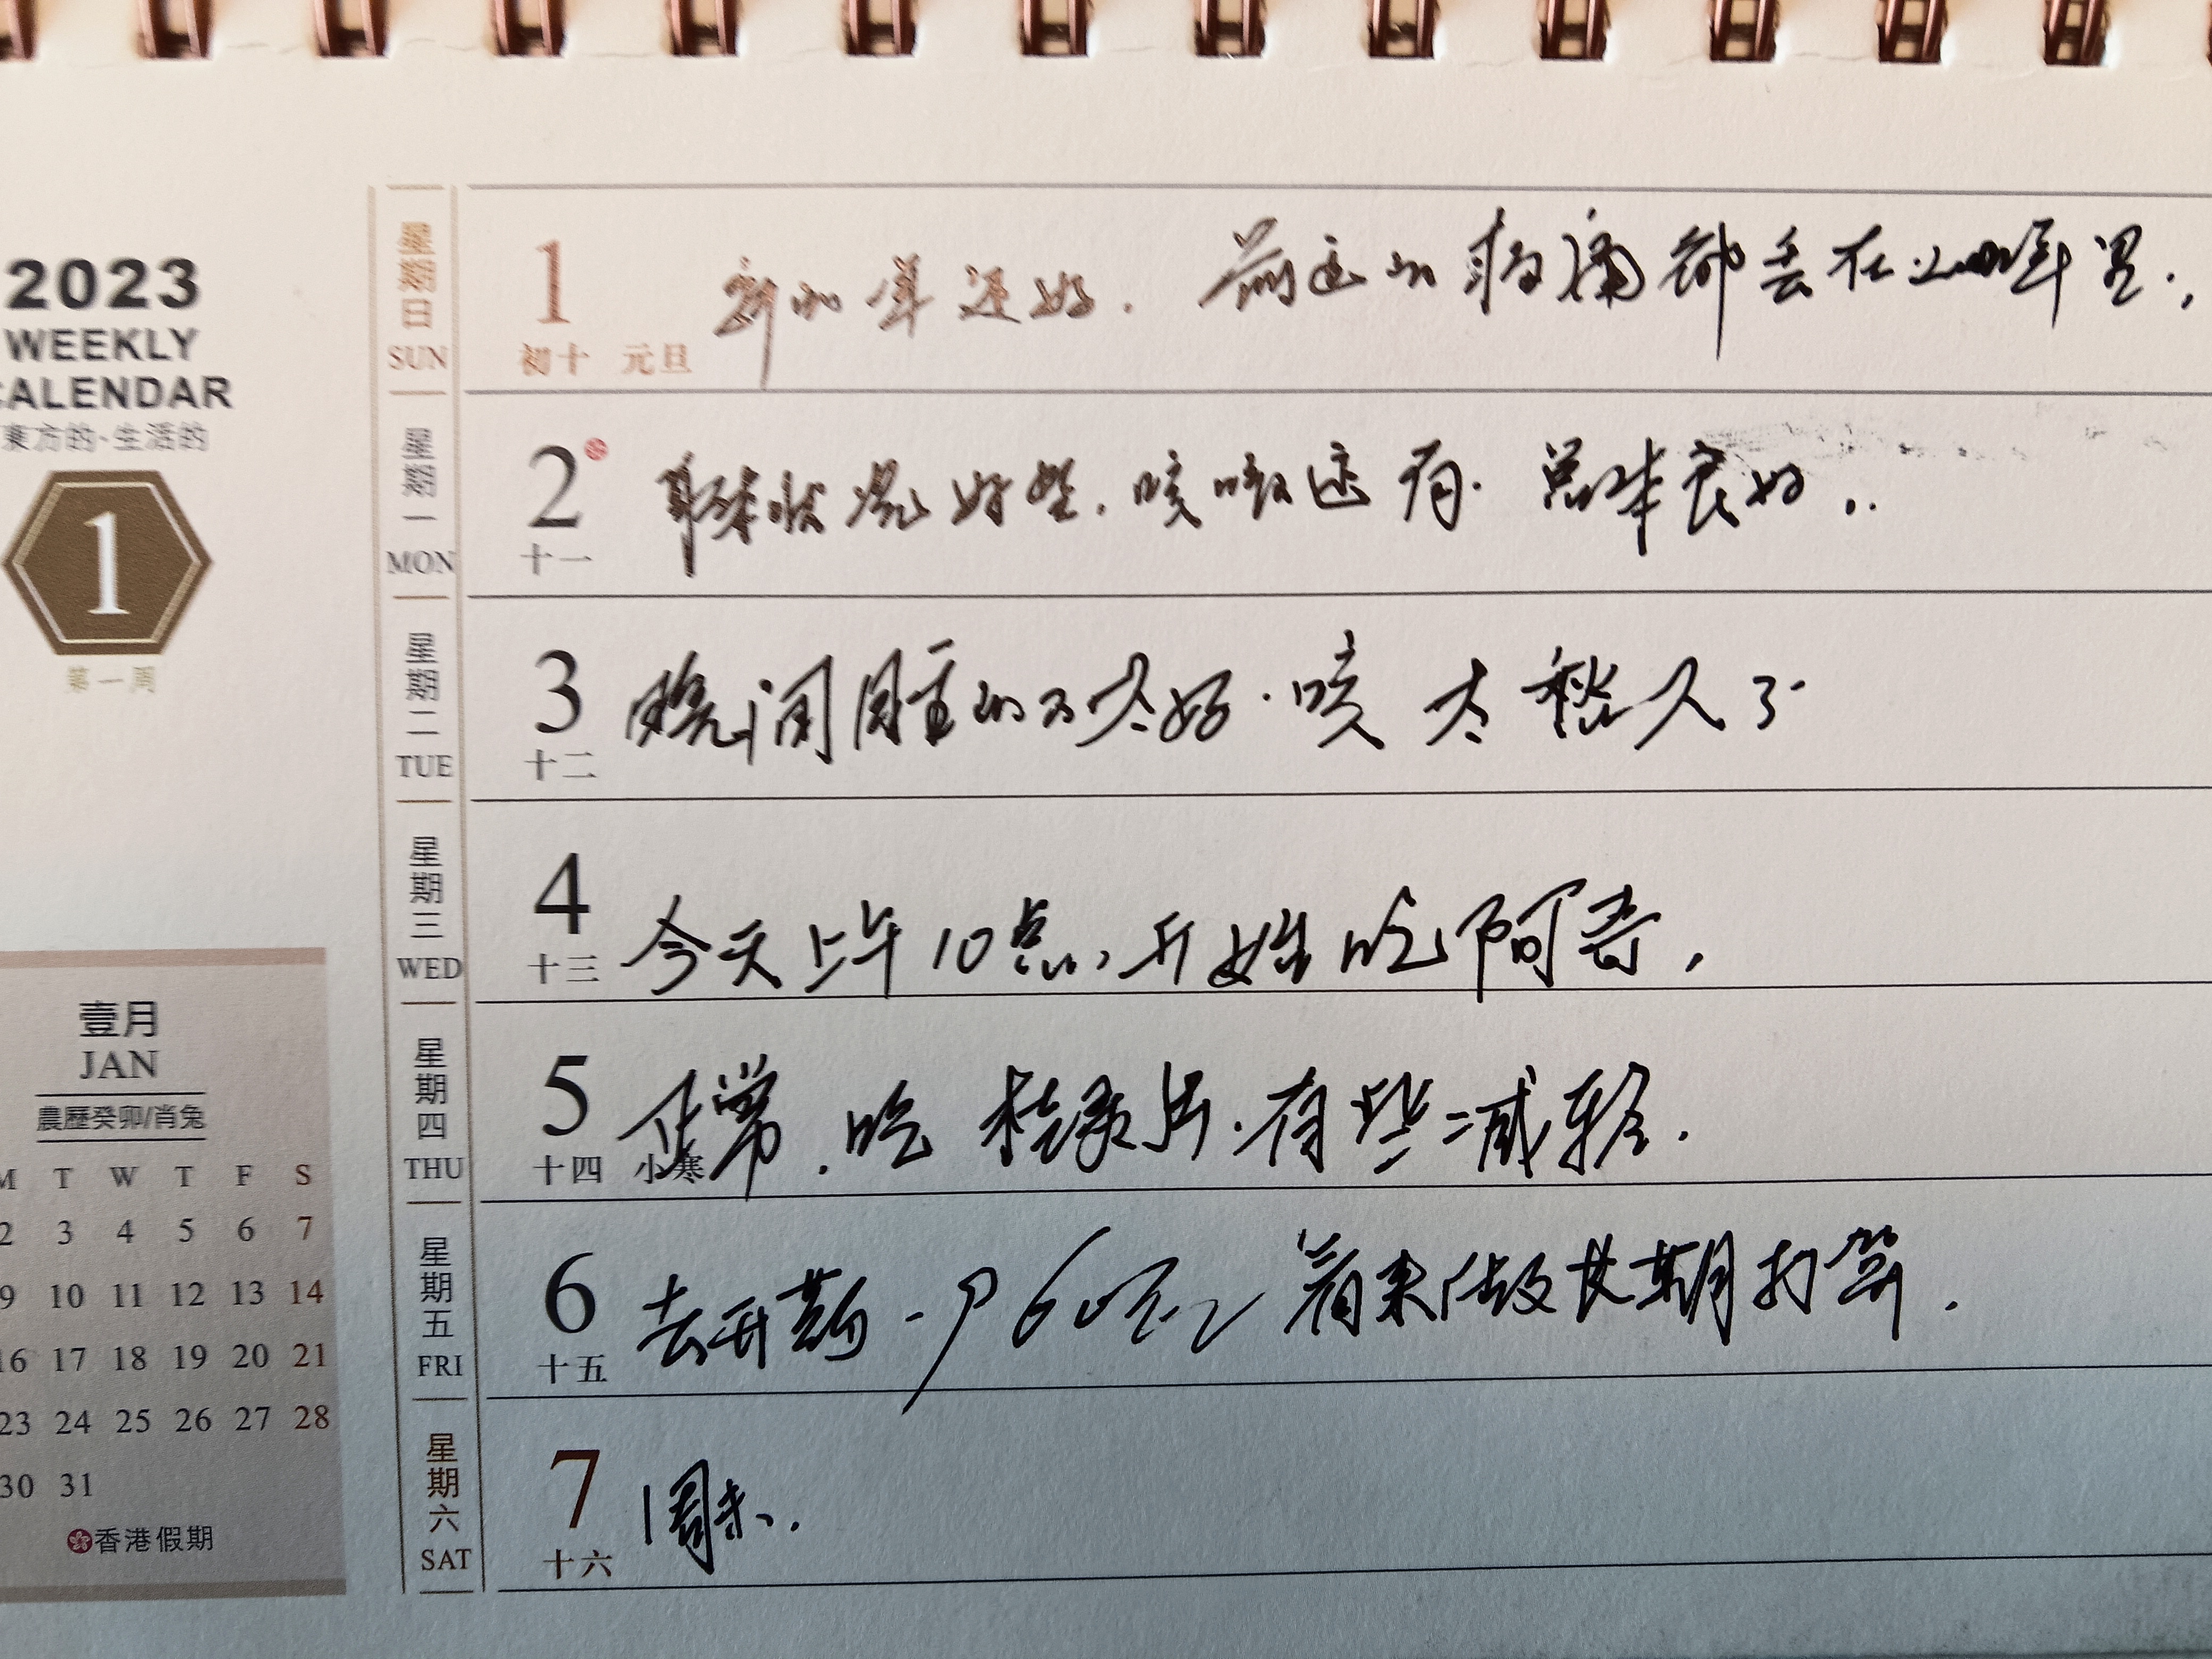 2023
WEEKLY
CALENDAR
東方的·生活的
1
第一周
壹月
JAN
農歷癸卯/肖兔
M T W T F S
2 3 4 5 6 7
9 10 11 12 13 14
16 17 18 19 20 21
23 24 25 26 27 28
30 31
香港假期
星期日 SUN
1 初十 元旦
新的一年还好. 前之的病痛都丢在2022年里.
星期一 MON
2 十一
身体状况好些.咳嗽还有.总体良好..
星期二 TUE
3 十二
晚间睡的不太好.咳太愁人了
星期三 WED
4 十三
今天上午10点,开始吃阿奇,
星期四 THU
5 十四 小寒
正常.吃 片.有些减轻.
星期五 FRI
6 十五
去开药 60 看来做长期打算.
星期六 SAT
7 十六
周末.